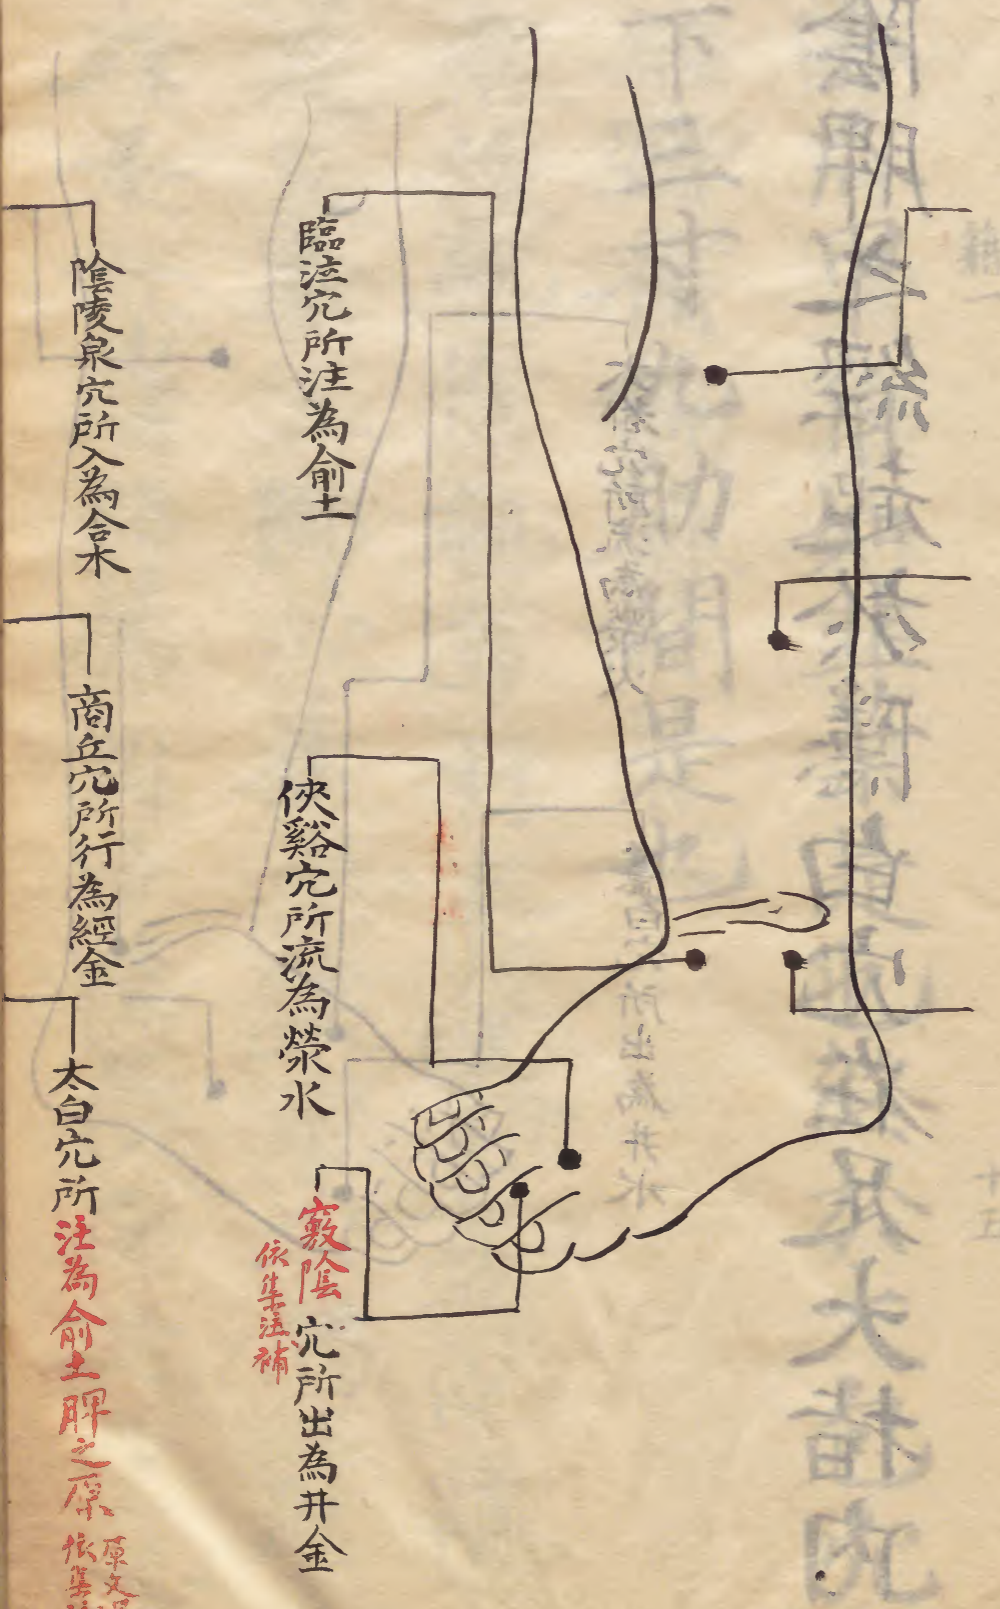 臨泣穴所注為俞土
俠谿穴所流為滎水
竅陰穴所出為井金
依集注補
陰陵泉穴所入為合水
商丘穴所行為經金
太白穴所注為俞土脾之原
原文
依集